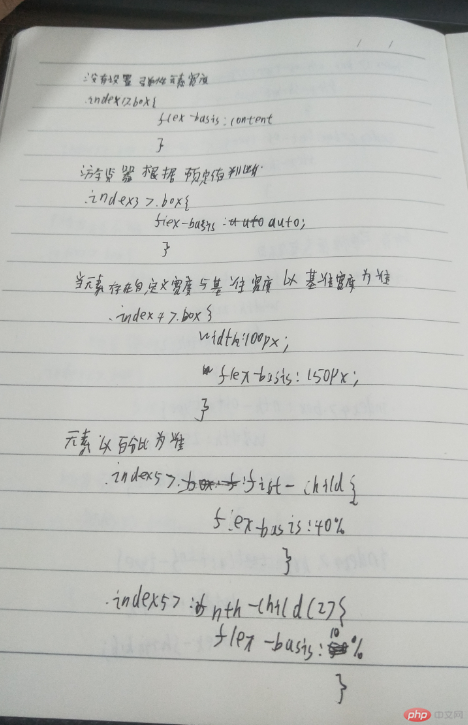 没有设置 弹性元素宽度
.index2>.box{
flex-basis:content
}
浏览器根据预定值
.index3>.box{
flex-basis:auto;
}
当元素存在自定义宽度与基准宽度 以基准宽度为准
.index4>.box{
width:100px;
flex-basis:150px;
}
元素以百分比为准
.index5>:fist-child{
flex-basis:40%
}
.index5>:nth-child(2){
flex-basis:10%
}
php 中文网